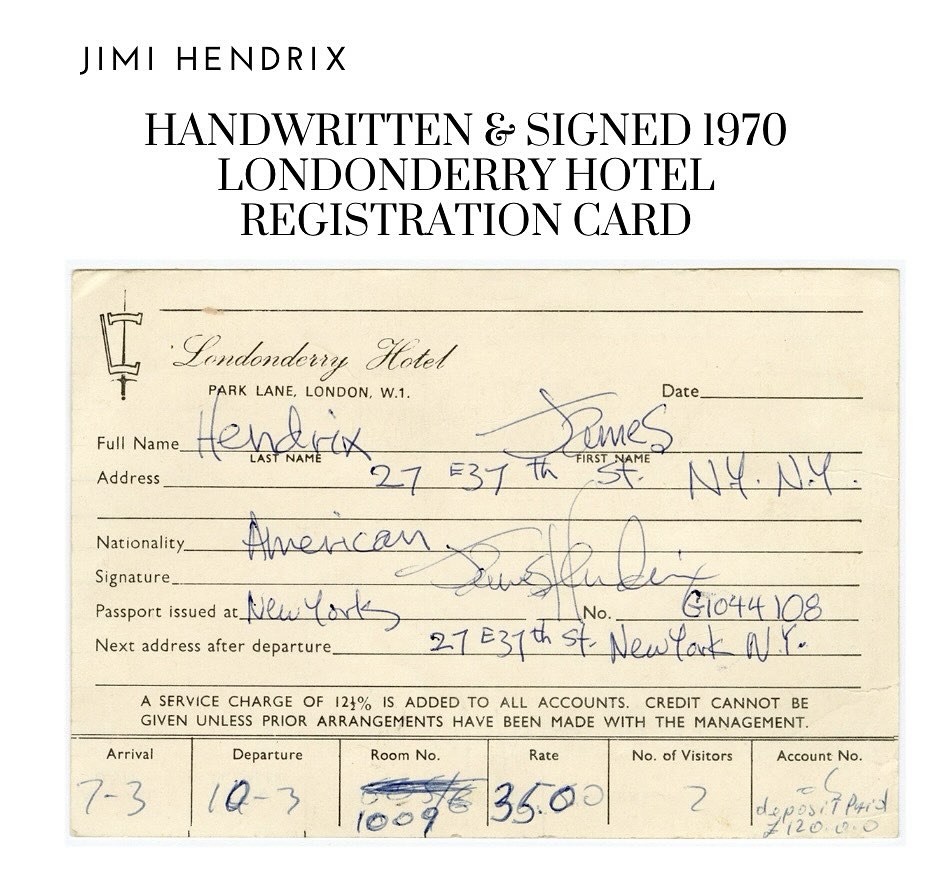 JIMI HENDRIX
HANDWRITTEN & SIGNED 1970
LONDONDERRY HOTEL
REGISTRATION CARD
Londonderry Hotel
PARK LANE, LONDON, W.1.
Date
Full Name Hendrix James
LAST NAME FIRST NAME
Address 27 E37th St. N.Y. N.Y.
Nationality American
Signature James Hendrix
Passport issued at New York No. G1044108
Next address after departure 27 E37th St. New York N.Y.
A SERVICE CHARGE OF 12½% IS ADDED TO ALL ACCOUNTS. CREDIT CANNOT BE
GIVEN UNLESS PRIOR ARRANGEMENTS HAVE BEEN MADE WITH THE MANAGEMENT.
Arrival Departure Room No. Rate No. of Visitors Account No.
7-3 10-3 1009 35.00 2
deposit Paid
£120.0.0